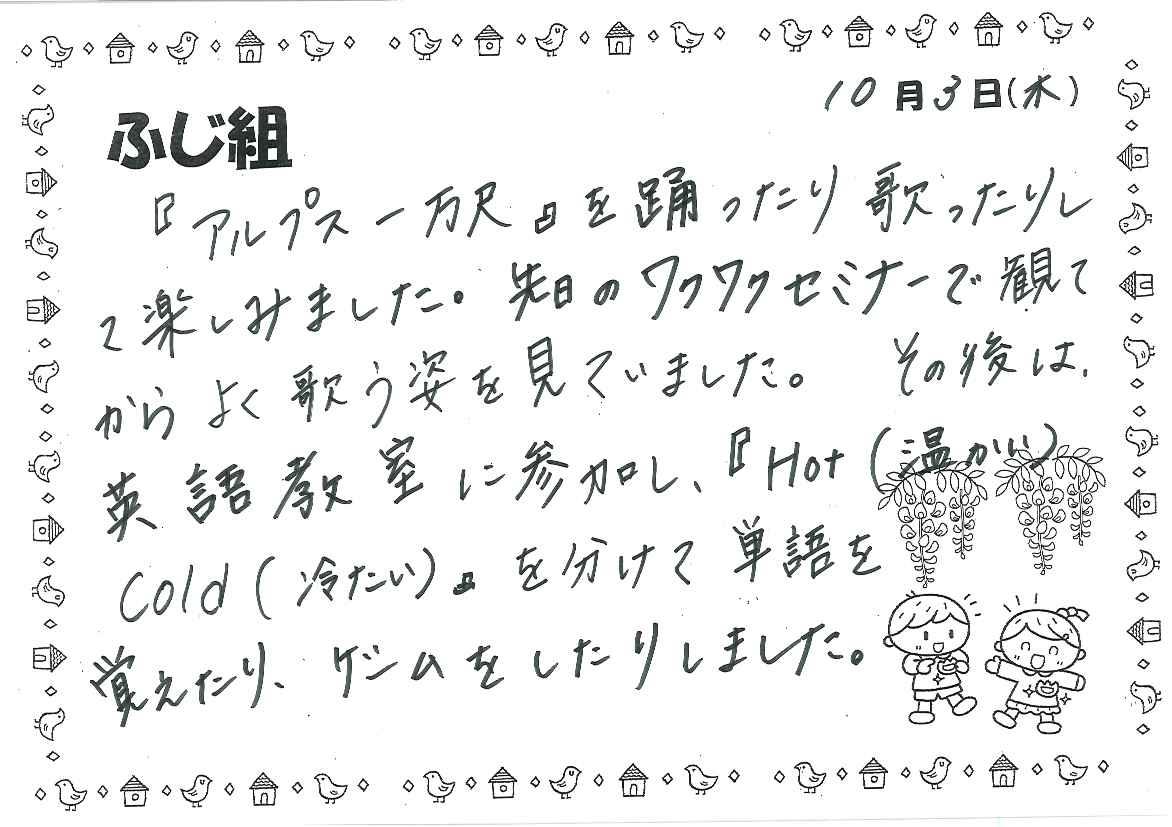 10月3日(木)
ふじ組
『アルプス一万尺』を踊ったり歌ったりし
て楽しみました。先日のワクワクセミナーで観て
からよく歌う姿を見ていました。 その後は、
英語教室に参加し、『Hot(温かい)
Cold(冷たい)』を分けて単語を
覚えたり、ゲームをしたりしました。